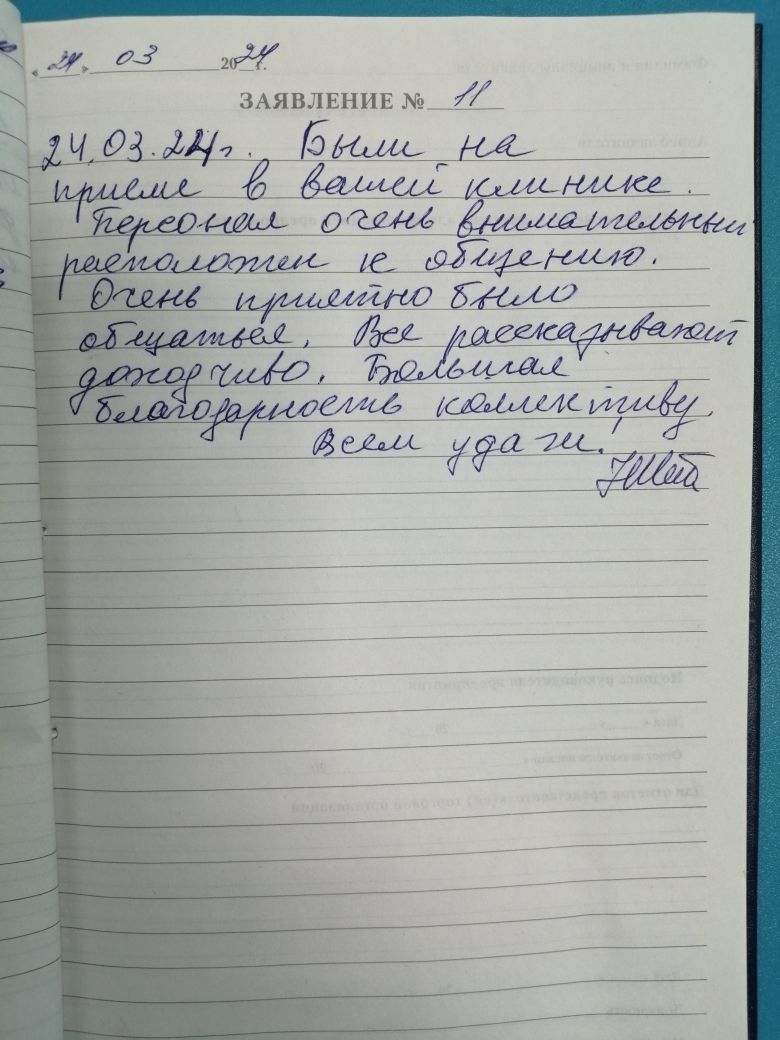 « 24 » 03 2024 г.
ЗАЯВЛЕНИЕ № 11
24.03.24г. Были на
приеме в вашей клинике.
Персонал очень внимательный
расположен к общению.
Очень приятно было
общаться. Все рассказывают
доходчиво. Большая
благодарность коллективу.
Всем удачи!